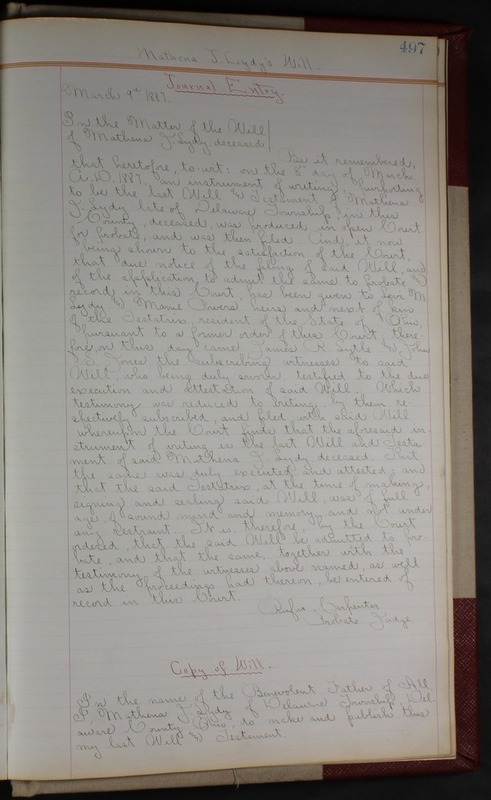 497
Mathena J. Lydy's Will.
Journal Entry.
March 9th 1887.
In the Matter of the Will
of Mathena J. Lydy deceased
Be it remembered,
that heretofore, to-wit: on the 8th day of March
A.D. 1887 an instrument of writing, purporting
to be the last Will & Testament of Mathena
J. Lydy late of Delaware Township in this
County, deceased, was produced in open Court
for probate, and was then filed. And it now
being shown to the satisfaction of the Court,
that due notice of the filing of said Will, and
of the application to admit the same to probate &
record in this Court, has been given to M
Lydy & Mamie heirs and next of kin
of the Testatrix resident of the State of Ohio,
pursuant to a former order of this Court there-
fore on this day came James R. Lytle & John
S. Jones the subscribing witnesses to said
Will, who being duly sworn testified to the due
execution and attestation of said Will. Which
testimony was reduced to writing, by them re-
spectively subscribed, and filed with said Will
whereupon the Court finds that the aforesaid in-
strument of writing is the last Will and Testa-
ment of said Mathena J. Lydy deceased. That
the same was duly executed and attested; and
that the said Testatrix, at the time of making,
signing and sealing said Will, was of full
age, of sound mind and memory, and not under
any restraint. It is, therefore, by the Court
ordered, that the said Will be admitted to pro-
bate, and that the same, together with the
testimony of the witnesses above named, as well
as the proceedings had thereon, be entered of
record in this Court.
Rufus Carpenter
Probate Judge
Copy of Will.
In the name of the Benevolent Father of All
I, Mathena J. Lydy of Delaware Township Del-
aware County Ohio do make and publish this
my last Will & Testament.